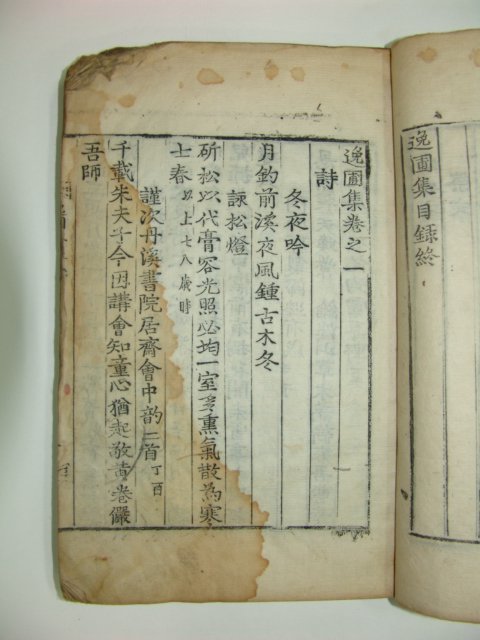 逸圃集目録終
逸圃集卷之一
詩
冬夜吟
月釣前溪夜風鍾古木冬
詠松燈
斫松以代膏容光照必均一室多熏氣散為寒
士春 以上七八歲時
謹次丹溪書院居齋會中韵二首 丁酉
千載朱夫子今因講會知童心猶起敬黄卷儼
吾師